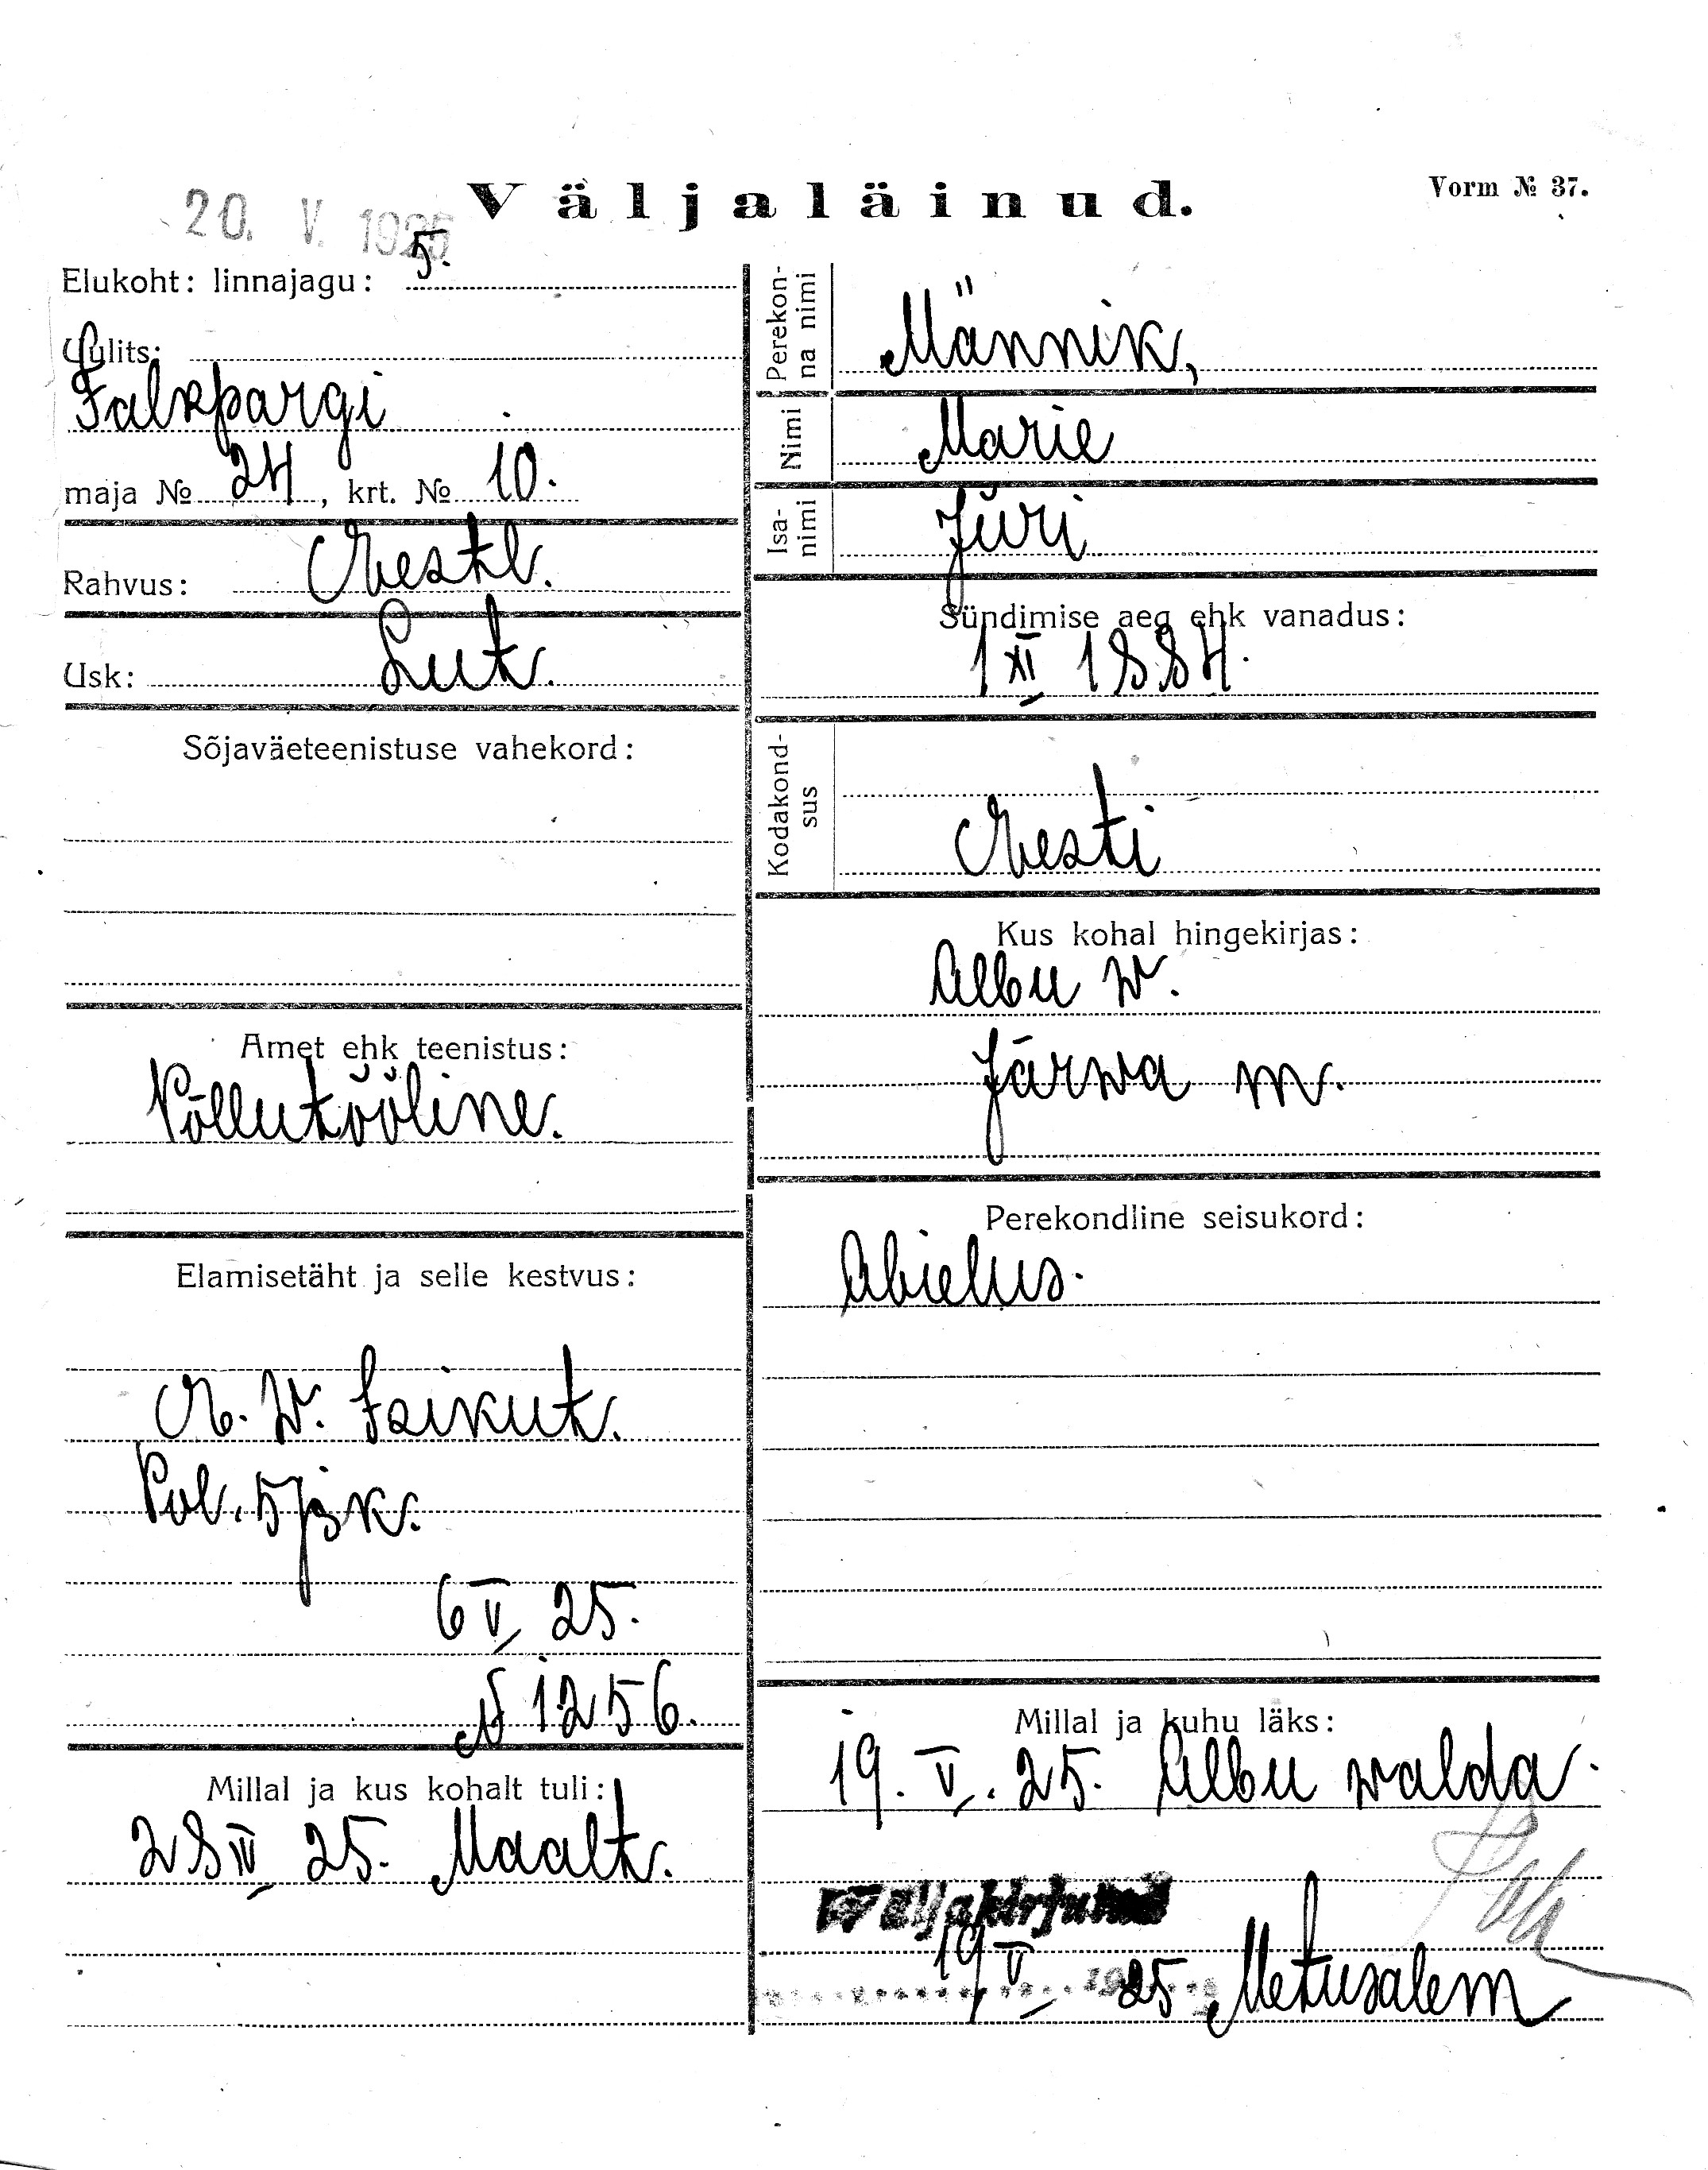 20. V. 1925
Väljaläinud.
Vorm № 37.
Elukoht: linnajagu: 5.
Uulits:
Falkpargi
maja № 24, krt. № 10.
Rahvus: Eestl.
Usk: Lut.
Sõjaväeteenistuse vahekord:
Amet ehk teenistus:
Põllutööline.
Elamisetäht ja selle kestvus:
E. W. Isikut.
Pol. 5 jsk.
6 V 25.
N 1256.
Millal ja kus kohalt tuli:
28 IV 25. Maalt.
Perekonna nimi
Männik,
Nimi
Marie
Isanimi
Jüri
Sündimise aeg ehk vanadus:
1 XI 1884.
Kodakondsus
Eesti
Kus kohal hingekirjas:
Albu w.
Järwa m.
Perekondline seisukord:
Abielus.
Millal ja kuhu läks:
19. V. 25. Albu walda.
Väljakirjutud
19 V 1925 Metusalem